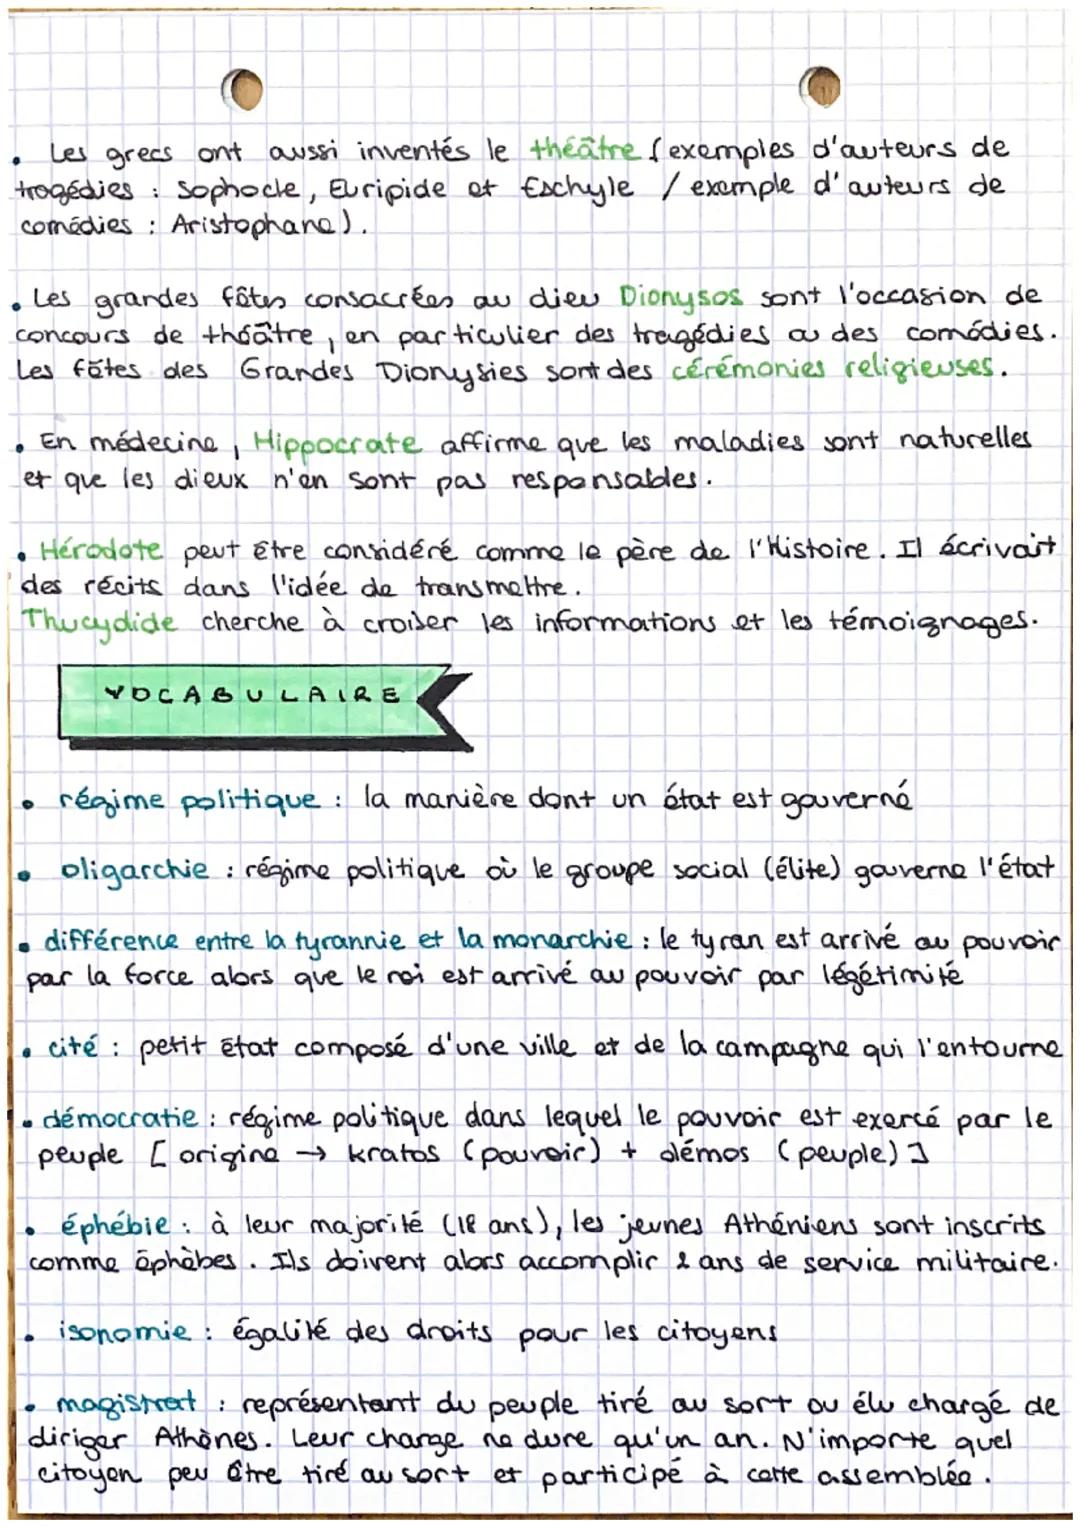 • Les grecs ont aussi inventés le théâtre (exemples d'auteurs de
tragédies : Sophocle, Euripide et Eschyle / exemple d'auteurs de
comédies : Aristophane).
• Les grandes fêtes consacrées au dieu Dionysos sont l'occasion de
concours de théâtre, en particulier des tragédies ou des comédies.
Les fêtes des Grandes Dionysies sont des cérémonies religieuses.
• En médecine, Hippocrate affirme que les maladies sont naturelles
et que les dieux n'en sont pas responsables.
• Hérodote peut être considéré comme le père de l'Histoire. Il écrivait
des récits dans l'idée de transmettre.
Thucydide cherche à croiser les informations et les témoignages.
VOCABULAIRE
• régime politique : la manière dont un état est gouverné
• oligarchie : régime politique où le groupe social (élite) gouverne l'état
• différence entre la tyrannie et la monarchie : le tyran est arrivé au pouvoir
par la force alors que le roi est arrivé au pouvoir par légétimité
• cité : petit état composé d'une ville et de la campagne qui l'entourne
• démocratie : régime politique dans lequel le pouvoir est exercé par le
peuple [origine → kratos (pouvoir) + démos (peuple)]
• éphébie : à leur majorité (18 ans), les jeunes Athéniens sont inscrits
comme éphèbes. Ils doivent alors accomplir 2 ans de service militaire.
• isonomie : égalité des droits pour les citoyens
• magistrat : représentant du peuple tiré au sort ou élu chargé de
diriger Athènes. Leur charge ne dure qu'un an. N'importe quel
citoyen peu être tiré au sort et participé à cette assemblée.